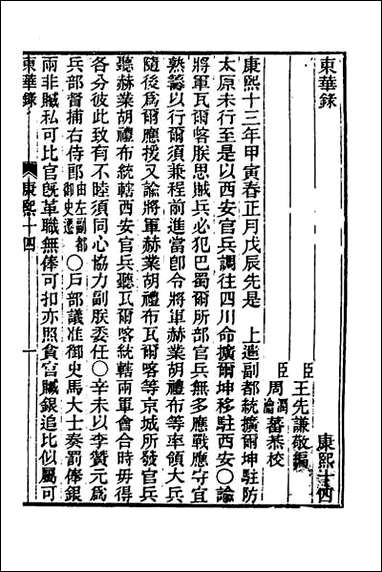 東華錄
康熙十四
臣王先謙敬編
臣周瀹蕃恭校
周潤
康熙十三年甲寅春正月戊辰先是 上遣副都統擴爾坤駐防
太原未行至是以西安官兵調往四川命擴爾坤移駐西安○諭
將軍瓦爾喀朕思賊兵必犯巴蜀爾所部官兵無多應戰應守宜
熟籌以行爾須兼程前進當卽令將軍赫業胡禮布等率領大兵
隨後爲爾應援又諭將軍赫業胡禮布瓦爾喀等京城所發官兵
聽赫業胡禮布統轄西安官兵聽瓦爾喀統轄兩軍會合時毋得
各分彼此致有不睦須同心協力副朕委任○辛未以李贊元爲
兵部督捕右侍郎由左副都御史遷○戶部議准御史馬大士奏罰俸銀
兩非贓私可比官旣革職無俸可扣亦照貪官贓銀追比似屬可
東華錄
康熙十四
一